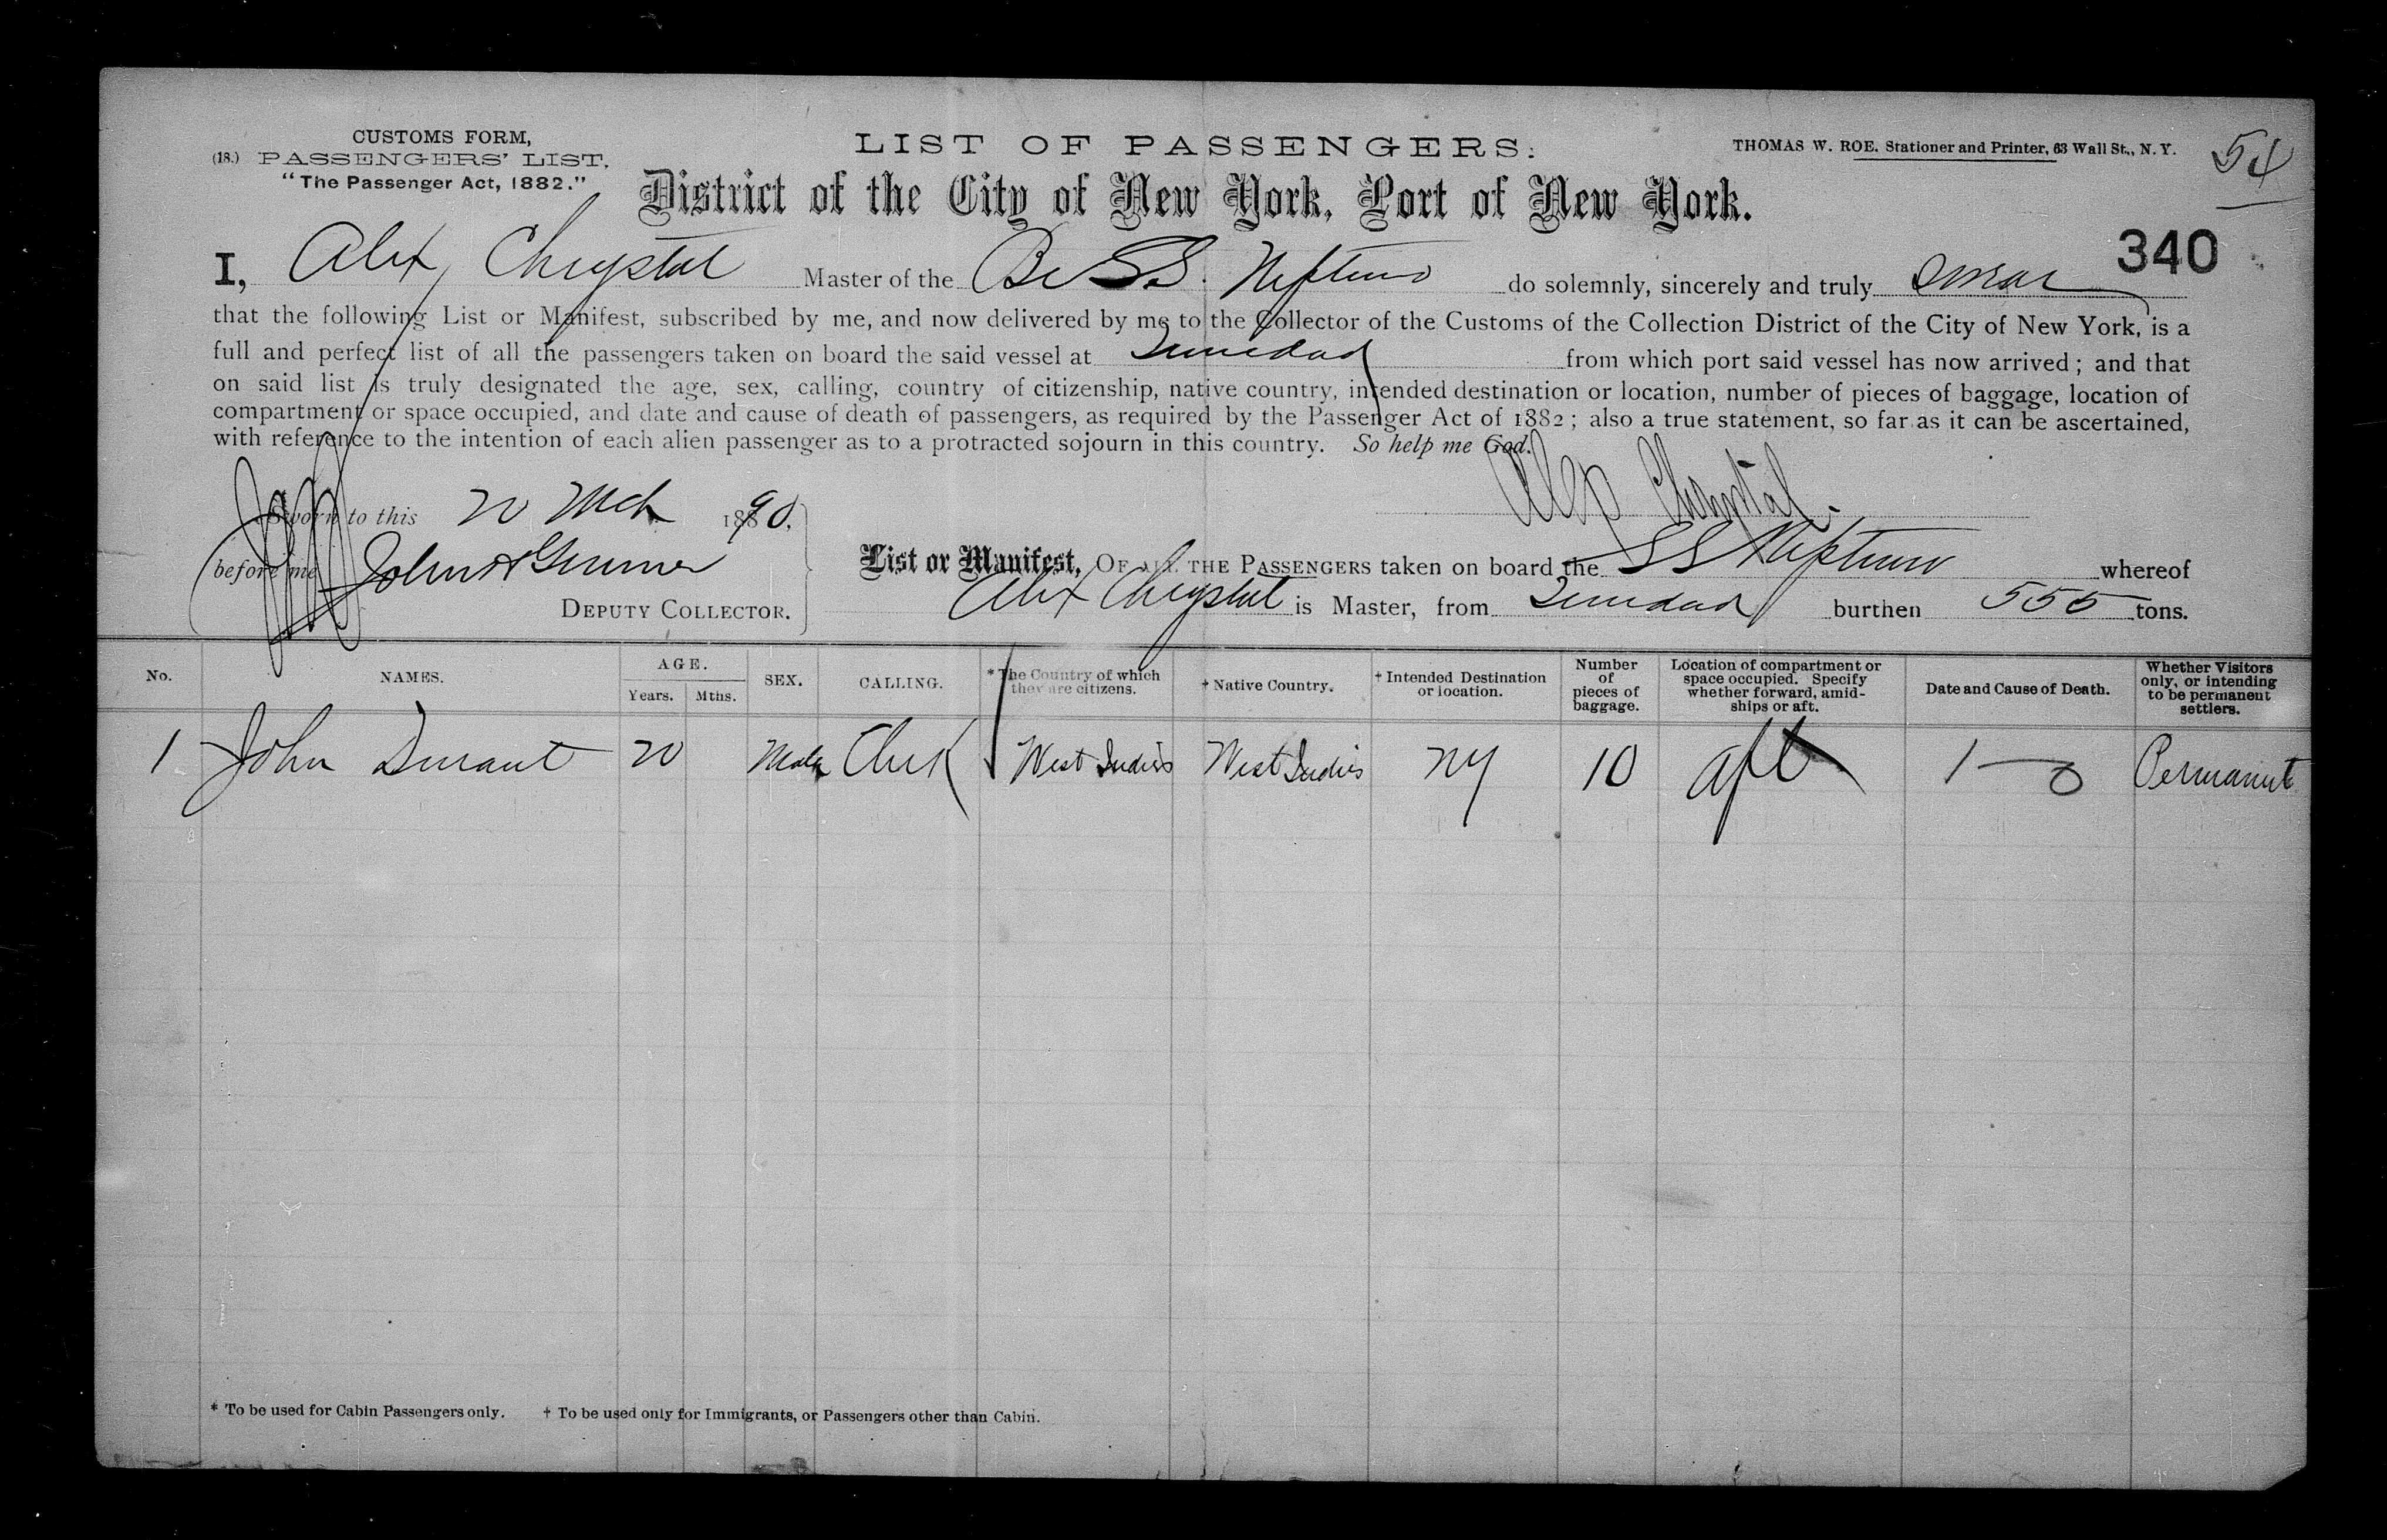 CUSTOMS FORM,
(18.) PASSENGERS' LIST.
"The Passenger Act, 1882."
LIST OF PASSENGERS.
THOMAS W. ROE. Stationer and Printer, 63 Wall St., N. Y.
54
District of the City of New York, Port of New York.
340
I, Alex Chrystal Master of the Br SS. Neptuno do solemnly, sincerely and truly swear
that the following List or Manifest, subscribed by me, and now delivered by me to the Collector of the Customs of the Collection District of the City of New York, is a
full and perfect list of all the passengers taken on board the said vessel at Trinidad from which port said vessel has now arrived; and that
on said list is truly designated the age, sex, calling, country of citizenship, native country, intended destination or location, number of pieces of baggage, location of
compartment or space occupied, and date and cause of death of passengers, as required by the Passenger Act of 1882; also a true statement, so far as it can be ascertained,
with reference to the intention of each alien passenger as to a protracted sojourn in this country. So help me God.
Alex Chrystal.
Sworn to this 20 Mch 1890.
before me John
DEPUTY COLLECTOR.
List or Manifest, OF ALL THE PASSENGERS taken on board the SS Neptuno whereof
Alex Chrystal is Master, from Trinidad burthen 555 tons.
No. NAMES. AGE. Years. Mths. SEX. CALLING. * The Country of which they are citizens. † Native Country. † Intended Destination or location. Number of pieces of baggage. Location of compartment or space occupied. Specify whether forward, amid-ships or aft. Date and Cause of Death. Whether Visitors only, or intending to be permanent settlers.
1 John Durant 20 Male Clerk West Indies West Indies NY 10 aft 1—0 Permanent
* To be used for Cabin Passengers only. † To be used only for Immigrants, or Passengers other than Cabin.